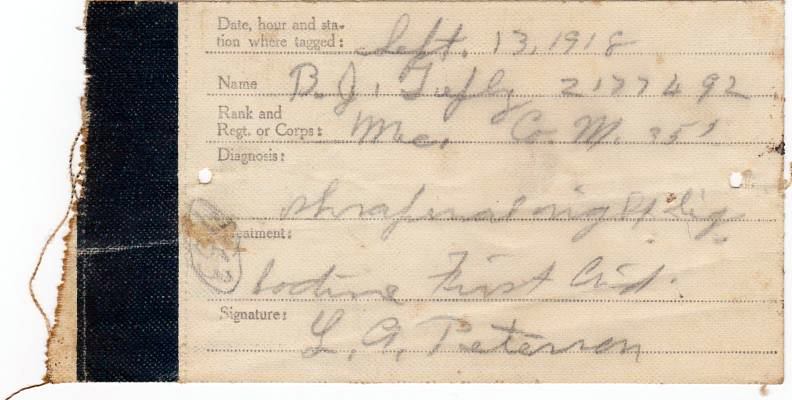 Date, hour and sta-
tion where tagged: Sept. 13, 1918
Name B. J. 2177492
Rank and
Regt. or Corps: Mec. Co. M. 355
Diagnosis:
Rt Leg
Treatment:
Iodine First Aid.
Signature:
L. A. Peterson